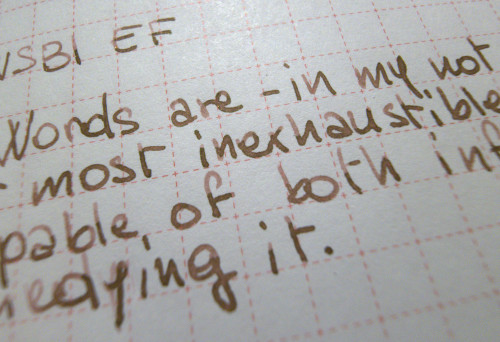 VSBI EF
Words are - in my not
most inexhaustible
pable of both inf
healing it.